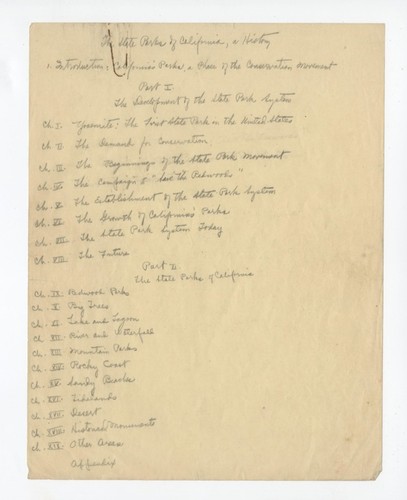 The State Parks of California, a History
1. Introduction: California's Parks, a Phase of the Conservation Movement
Part I
The Development of the State Park System
Ch. I. Yosemite: The First State Park in the United States
Ch. II The Demand for Conservation
Ch. III The Beginnings of the State Park Movement
Ch. IV The Campaign to "Save the Redwoods"
Ch. V The Establishment of the State Park System
Ch. VI The Growth of California's Parks
Ch. VII The State Park System Today
Ch. VIII The Future
Part II
The State Parks of California
Ch. IX Redwood Parks
Ch. X Big Trees
Ch. XI Lake and Lagoon
Ch. XII River and Waterfall
Ch. XIII Mountain Parks
Ch. XIV Rocky Coast
Ch. XV Sandy Beaches
Ch. XVI Tidelands
Ch. XVII Desert
Ch. XVIII Historical Monuments
Ch. XIX Other Areas
Appendix